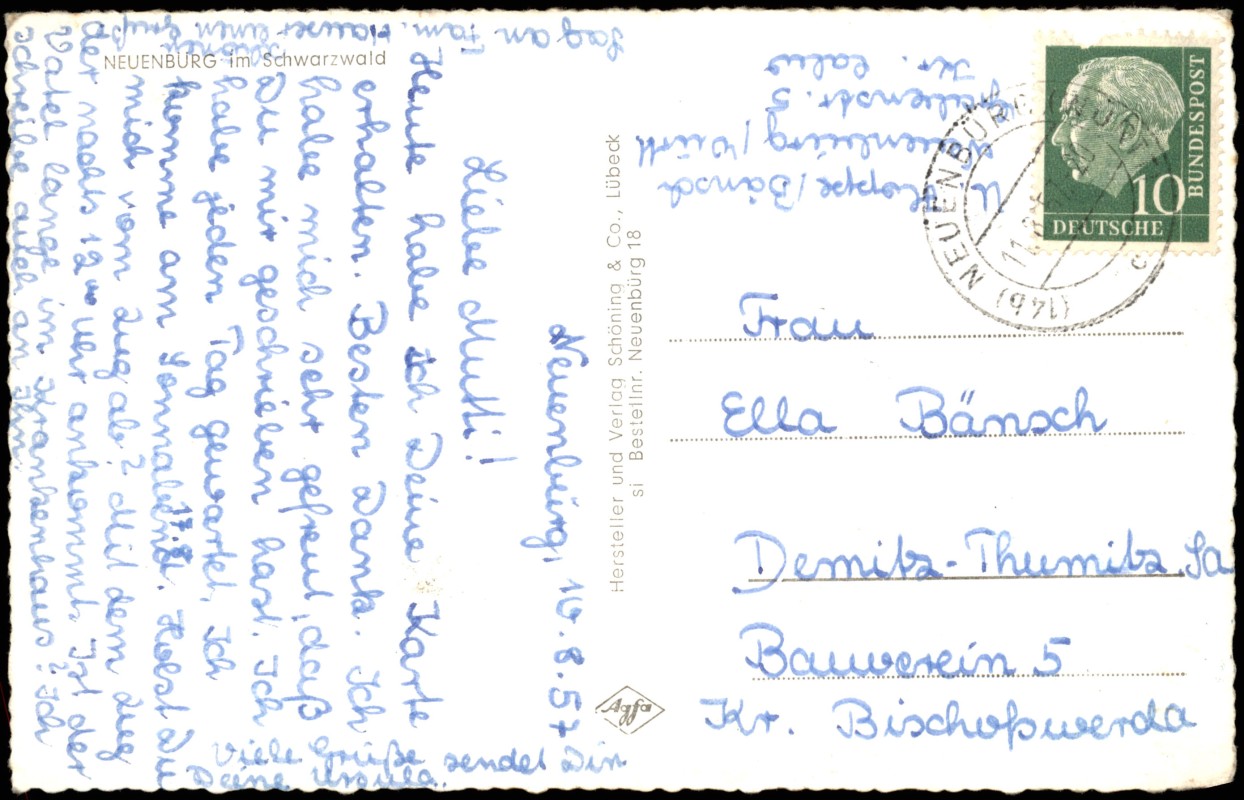 NEUENBÜRG im Schwarzwald
Neuenbürg, 10.8.57
Liebe Mutti!
Heute habe ich Deine Karte
erhalten. Besten Dank. Ich
habe mich sehr gefreut, daß
Du mir geschrieben hast. Ich
habe jeden Tag gewartet, Ich
komme am Sonnabend. Holst Du
17.8.
mich vom Zug ab? Mit dem Zug
der nachts 12 uer ankommt. Ist der
Vatel lange im Krankenhaus? Ich
schreibe auch an Ihn.
Sag an Fam. Hauser einen
schönen Gruß
Viele Grüße sendet Dir
Deine Ursula.
Hersteller und Verlag Schöning & Co., Lübeck
si Bestellnr. Neuenbürg 18
Agfa
U. Hoppe/Bänsch
Neuenbürg/Württ
Kr. Calw
(14b) NEUENBÜRG (WÜRTT)
c
10
DEUTSCHE
BUNDESPOST
Frau
Ella Bänsch
Demitz-Thumitz, Sa
Bauverein 5
Kr. Bischoßwerda